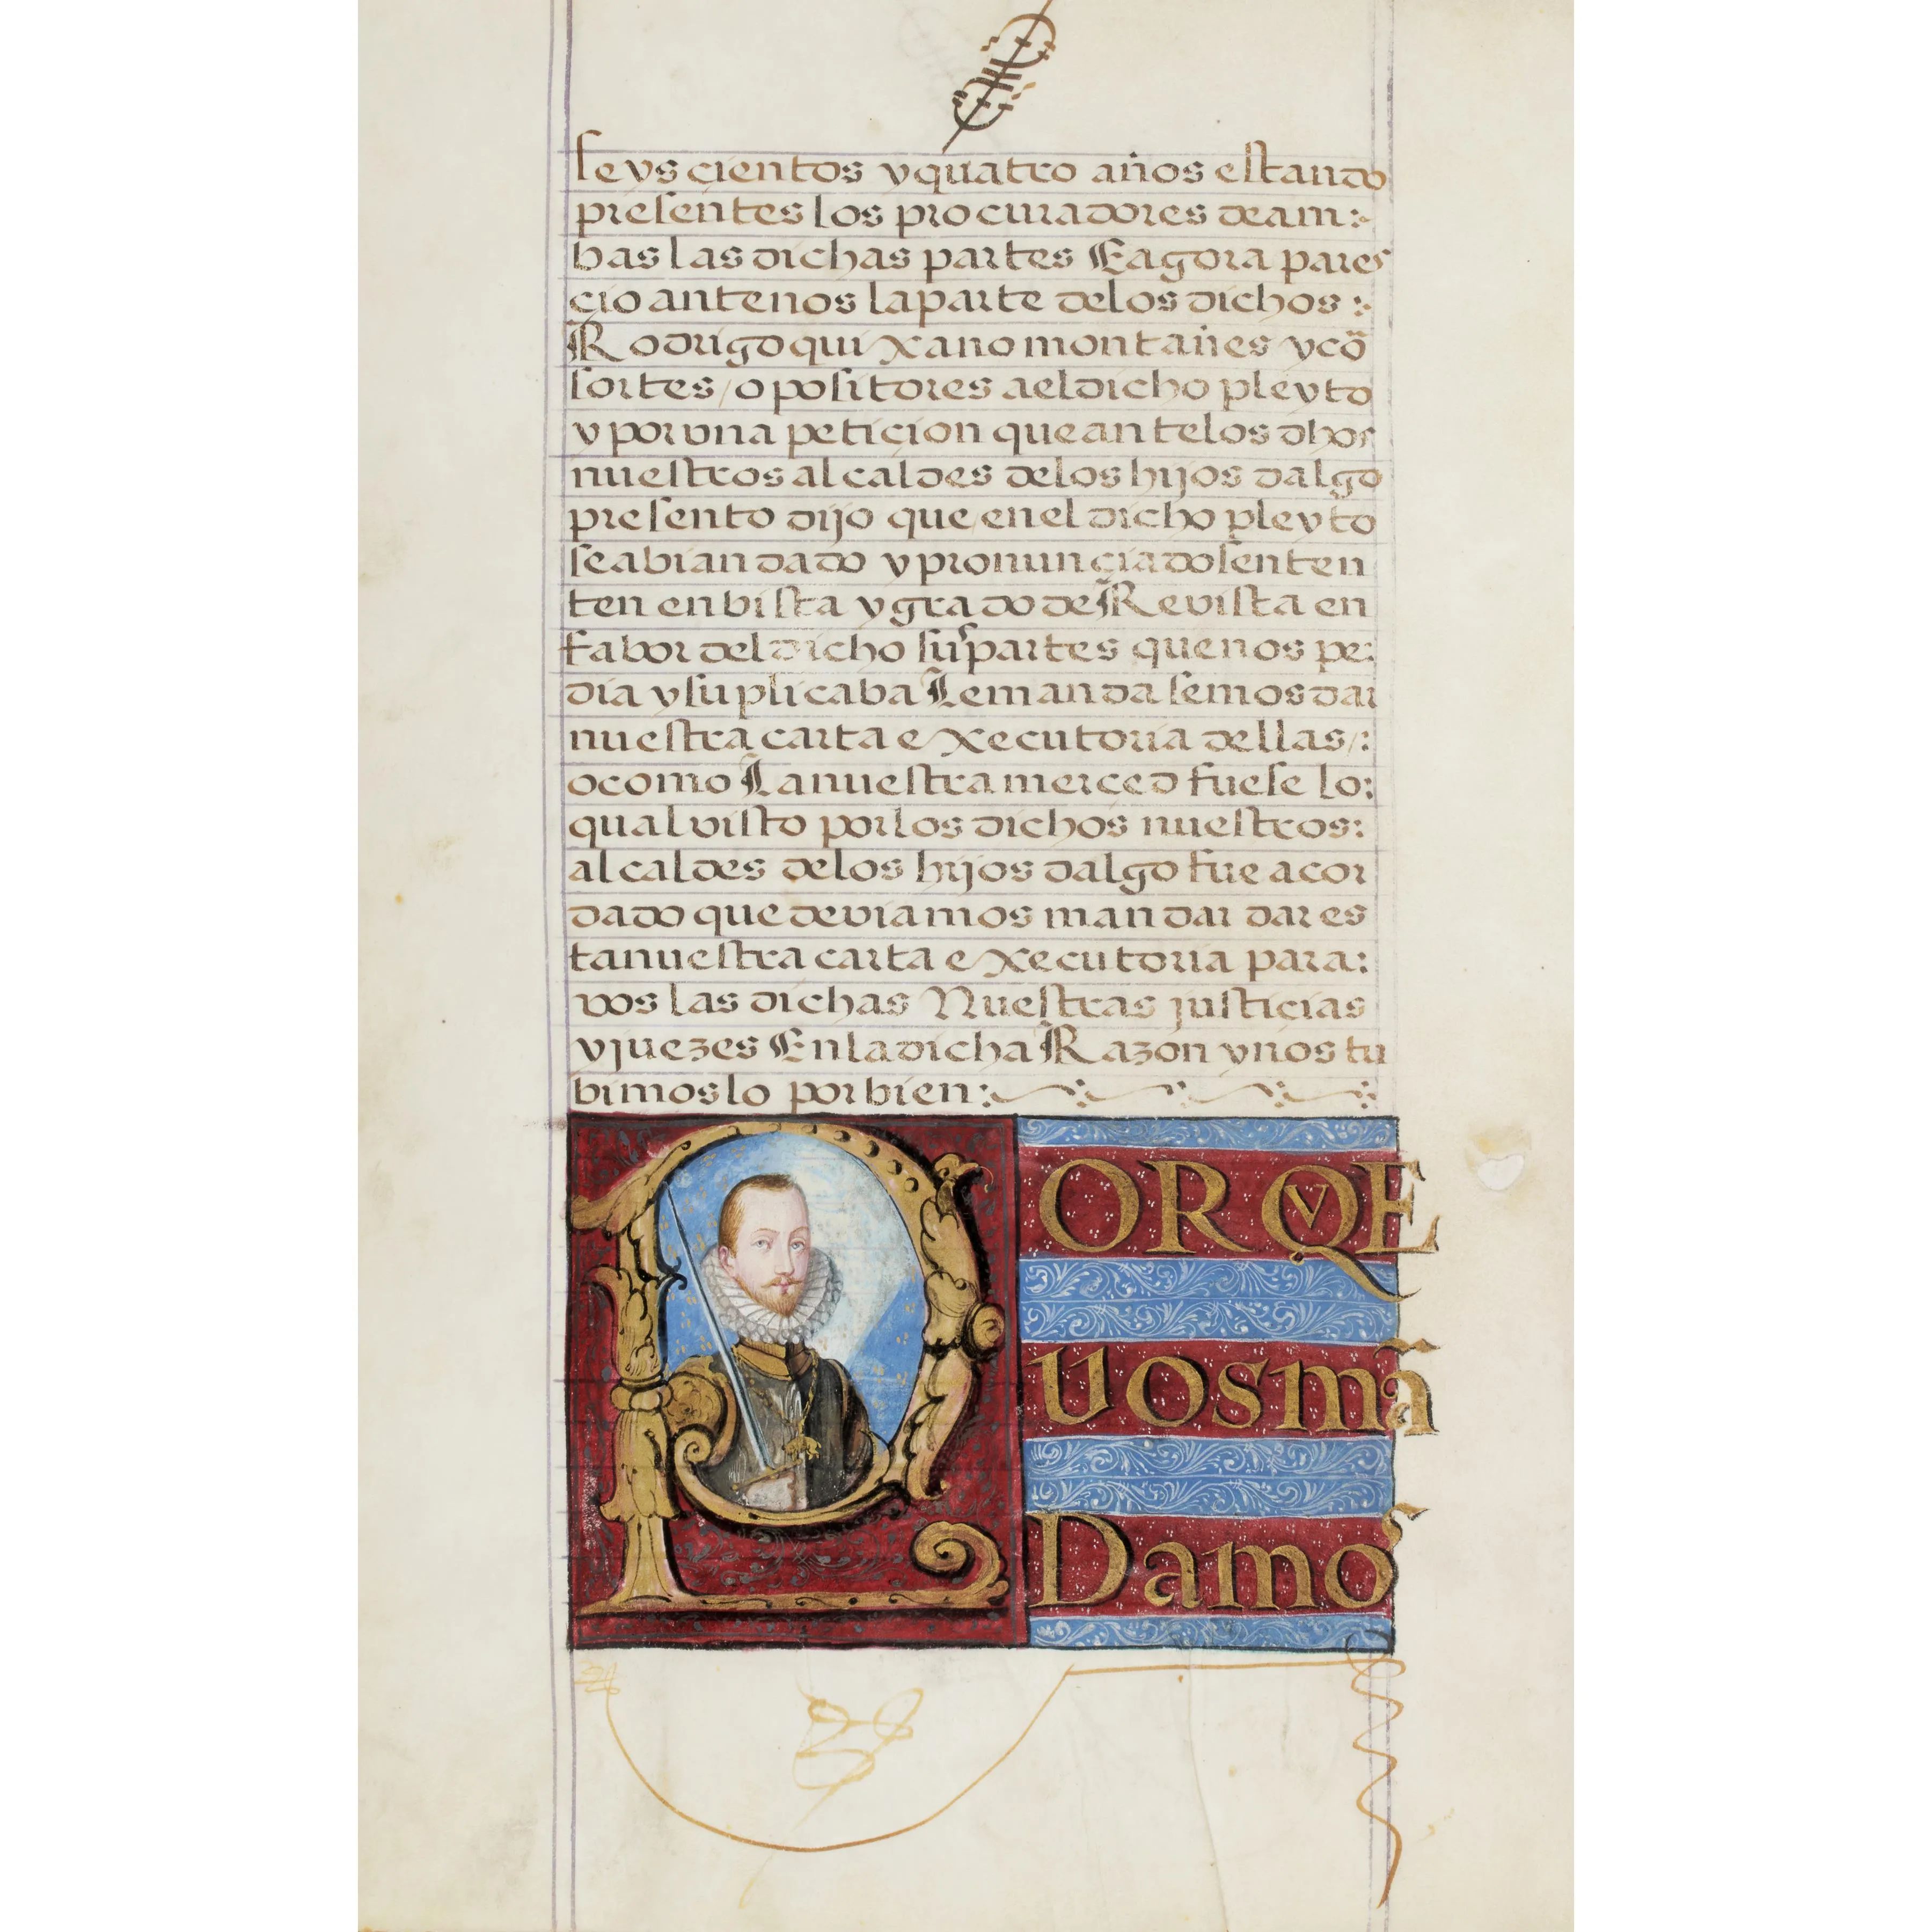 seys cientos y quatro años estando
presentes los procuradores de am:
bas las dichas partes E agora pares
çio ante nos la parte de los dichos :
Rodrigo quixano montañes y cõ
sortes / opositores a el dicho pleyto
y por vna petiçion que antelos dhos
nuestros alcaldes delos hijos dalgo
presento dijo que en el dicho pleyto
se abian dado y pronunçiado senten
ten en bista y grado de Revista en
fabor del dicho sus partes que nos pe:
dia y suplicaba Le mandasemos dar
nuestra carta executoria dellas /:
o como La nuestra merçed fuese lo:
qual visto por los dichos nuestros:
alcaldes delos hijos dalgo fue acor
dado que deviamos mandar dar es
ta nuestra carta executoria para:
vos las dichas Nuestras justiçias
y juezes En la dicha Razon y nos tu
bimoslo por bien:
POR QVE
vos mã
Damos